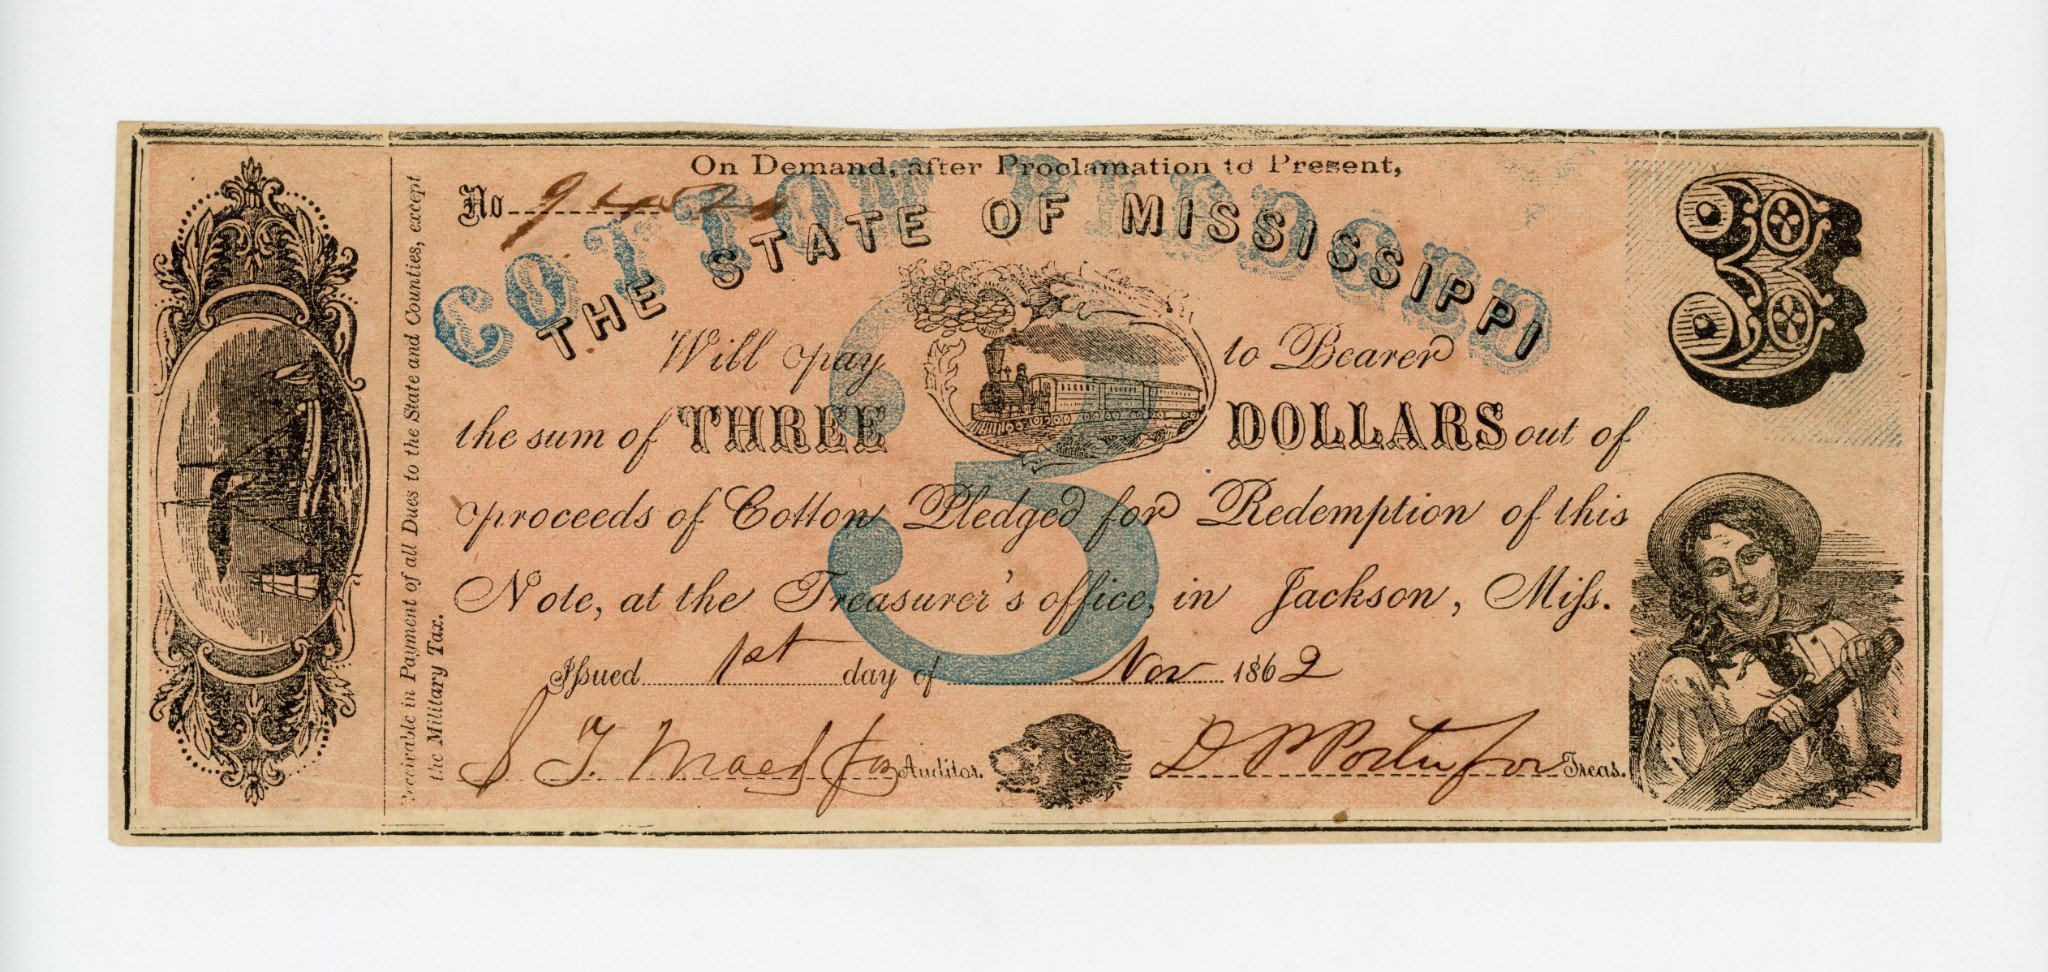 On Demand, after Proclamation to Present,
No 9452
COTTON PLEDGED
THE STATE OF MISSISSIPPI
3
Will pay to Bearer
the sum of THREE DOLLARS out of
proceeds of Cotton Pledged for Redemption of this
Note, at the Treasurer's office, in Jackson, Miſs.
3
Iſsued 1st day of Nov 1862
Auditor. D P Porter for Treas.
Receivable in Payment of all Dues to the State and Counties, except
the Military Tax.